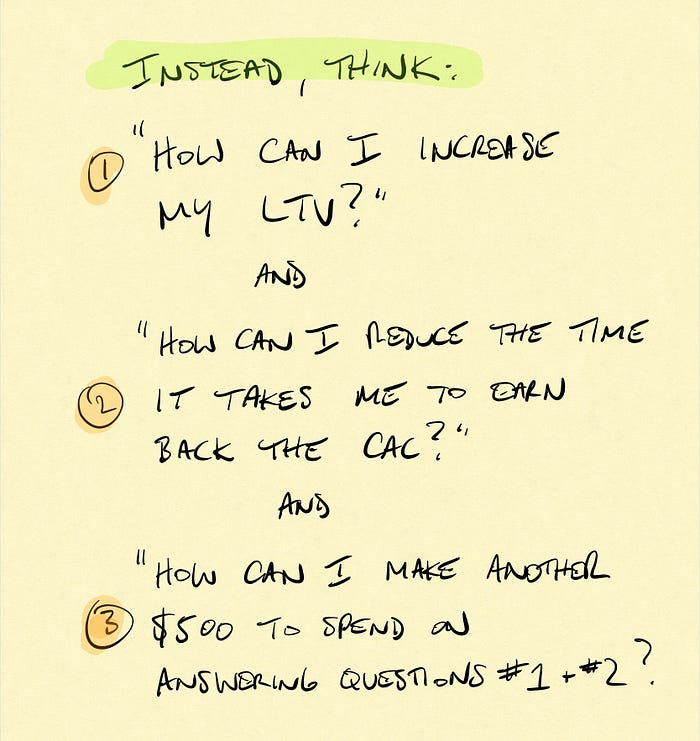 INSTEAD, THINK:
① "HOW CAN I INCREASE
MY LTV?"
AND
"HOW CAN I REDUCE THE TIME
② IT TAKES ME TO EARN
BACK THE CAC?"
AND
"HOW CAN I MAKE ANOTHER
③ $500 TO SPEND ON
ANSWERING QUESTIONS #1 + #2?